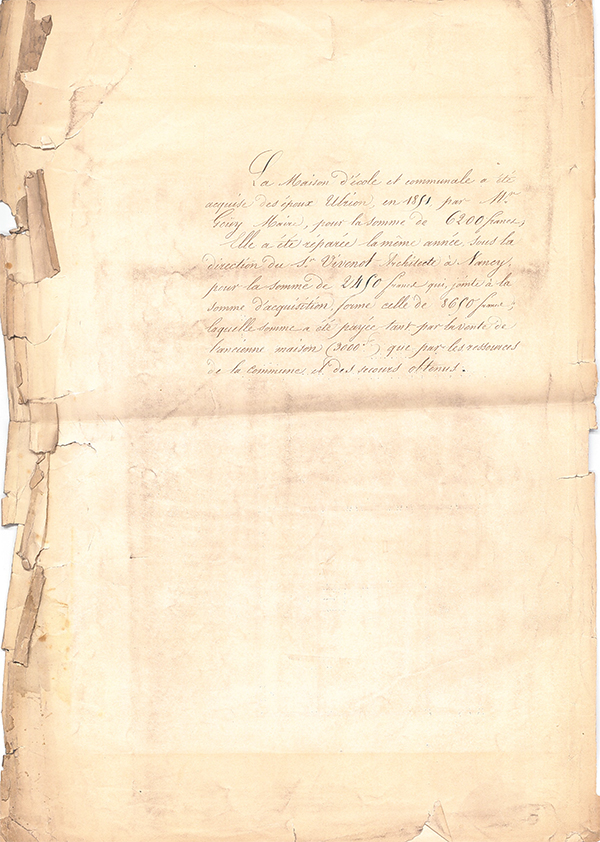 La Maison d'école et communale a été
acquise des époux Ulrion, en 1851, par Mr
Geny Maire, pour la somme de 6200 francs,
Elle a été réparée la même année, sous la
direction du Sr Vivenot Architecte à Nancy,
pour la somme de 2450 francs qui, jointe à la
somme d'acquisition, forme celle de 8650 francs;
laquelle somme a été payée tant par la vente de
l'ancienne maison (3000 f) que par les ressources
de la commune et des secours obtenus.